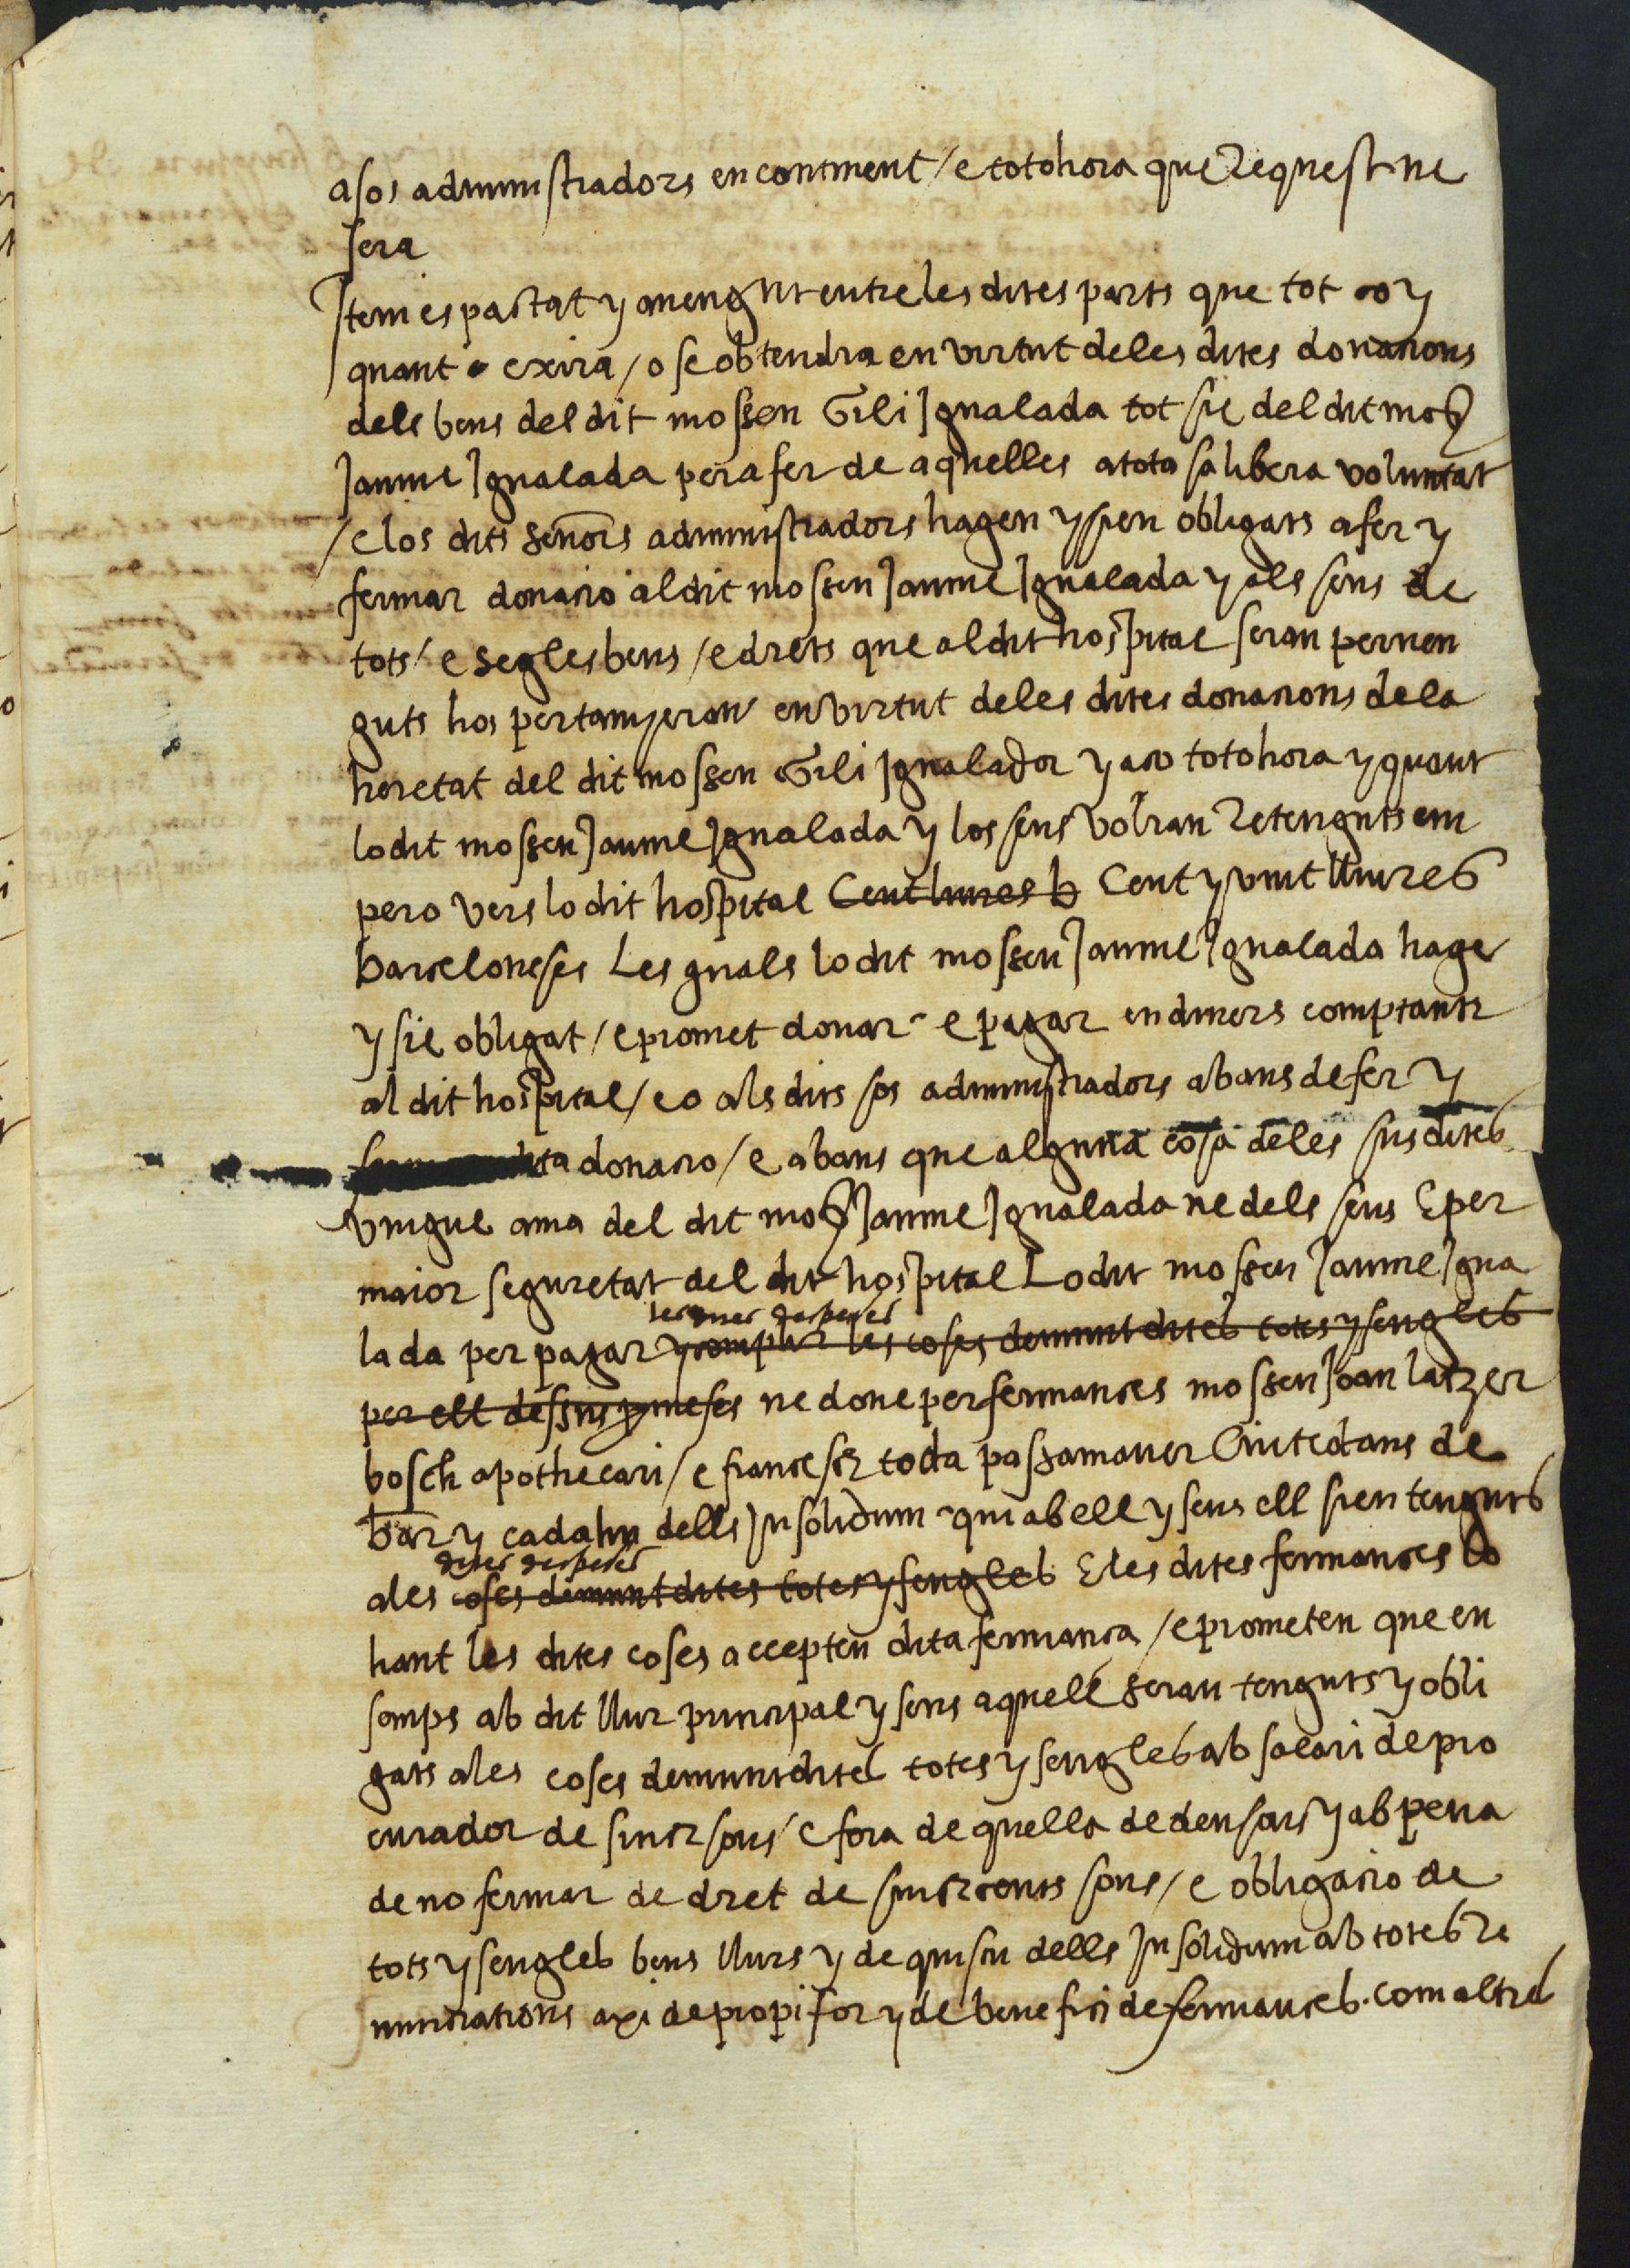 asos administradors encontinent / e totohora que request ne
sera
Item es pactat y avengut entre les dites parts que tot y
quant exira / o se obtendra en virtut deles dites donacions
dels bens del dit mossen Gili Igualada tot sie del dit moss
Jaume Igualada per a fer de aquelles atota sa libera voluntat
/ e los dits senors administradors hagen y sien obligats afer y
fermar donacio al dit mossen Jaume Igualada y als seus de
tots / e segles bens / e drets que al dit hospital seran perven
guts hos pertanyeran en virtut deles dites donacions dela
heretat del dit mossen Gili Igualador y aco totohora y quant
lo dit mossen Jaume Igualada y los seus volran Retenguts em
pero vers lo dit hospital Cent liures b Cent y vint lliures
barceloneses Les quals lo dit mossen Jaume Igualada hage
y sie obligat / e promet donar e pagar en diners comptants
al dit hospital / eo als dits sos administradors abans de fer y
dita donacio / e abans que alguna cosa deles susdites
vingue a ma del dit moss Jaume Igualada ne dels seus E per
maior seguretat del dit hospital Lo dit mossen Jaume Igua
lada per pagar y complir les coses demunt dites totes y sengles
per ell dessus promeses ne done per fermances mossen Joan latzer
bosch apothecari / e francesch toda passamaner Ciutedans de
bar y cadahu dells In solidum qui ab ell y sens ell sien tenguts
ales coses demunt dites totes y sengles E les dites fermances lo
hant les dites coses accepten dita fermança / e prometen que en
semps ab dit llur principal y sens aquell seran tenguts y obli
gats ales coses demunt dites totes y sengles ab salari de pro
curador de sinch sous e fora de quella de deu sous y ab pena
de no fermar de dret de sinch cents sous / e obligacio de
tots y sengles bens llurs y de quiscu dells In solidum ab totes Re
nunciations axi de propi for y de benefici de fermances com altres